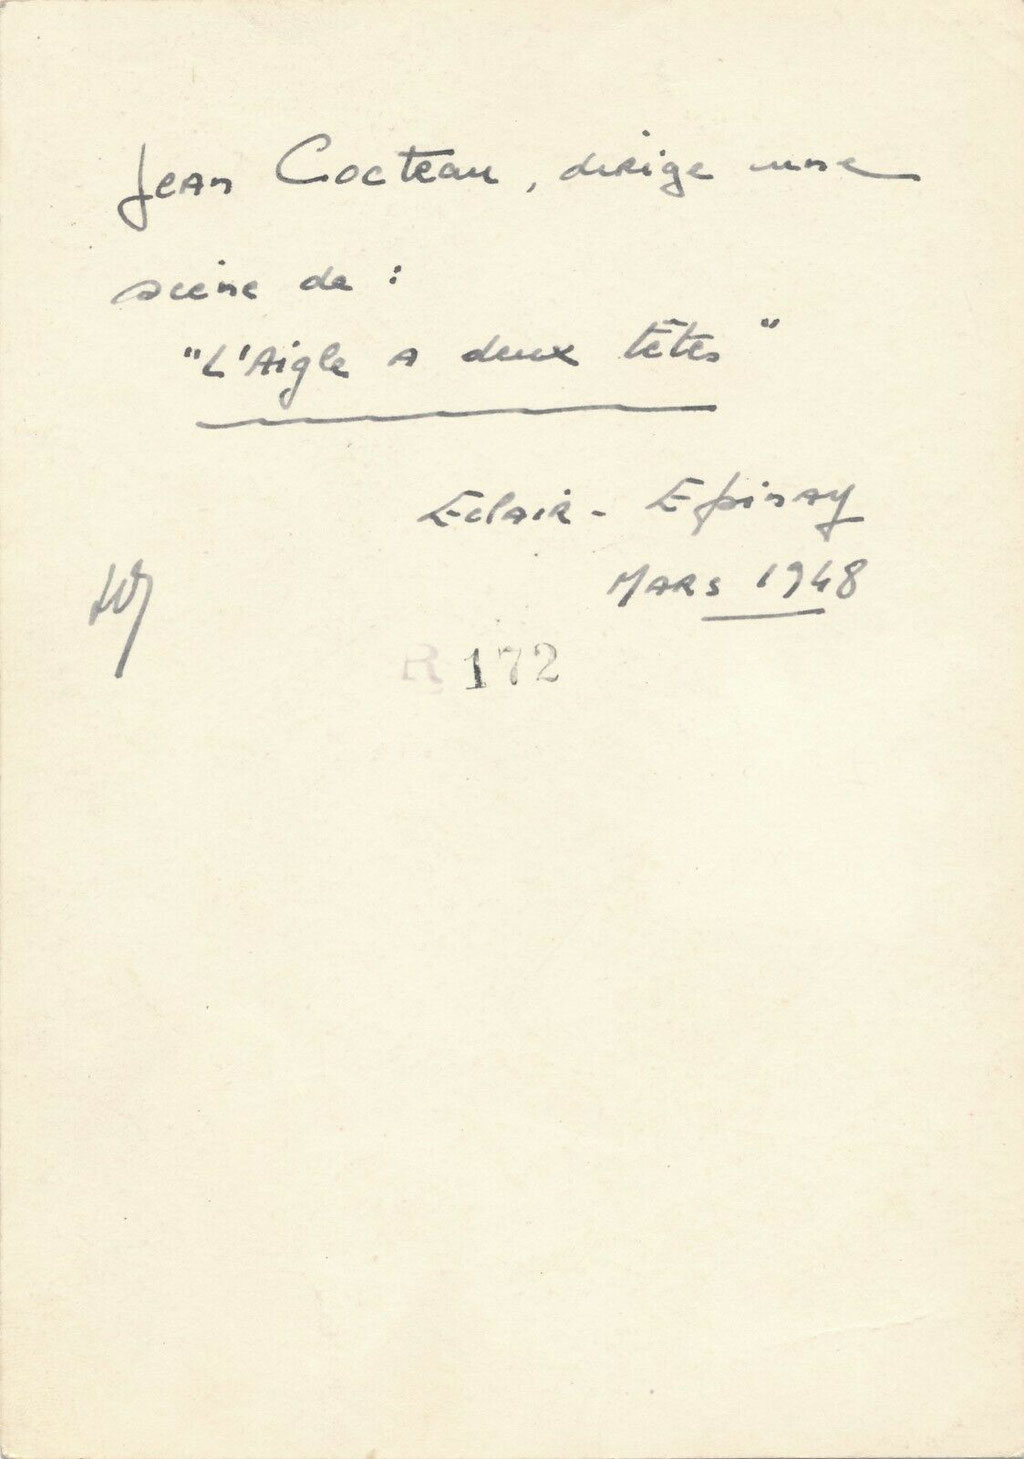 Jean Cocteau, dirige une
scène de :
"L'Aigle a deux têtes"
Eclair - Epinay
MARS 1948
R 172